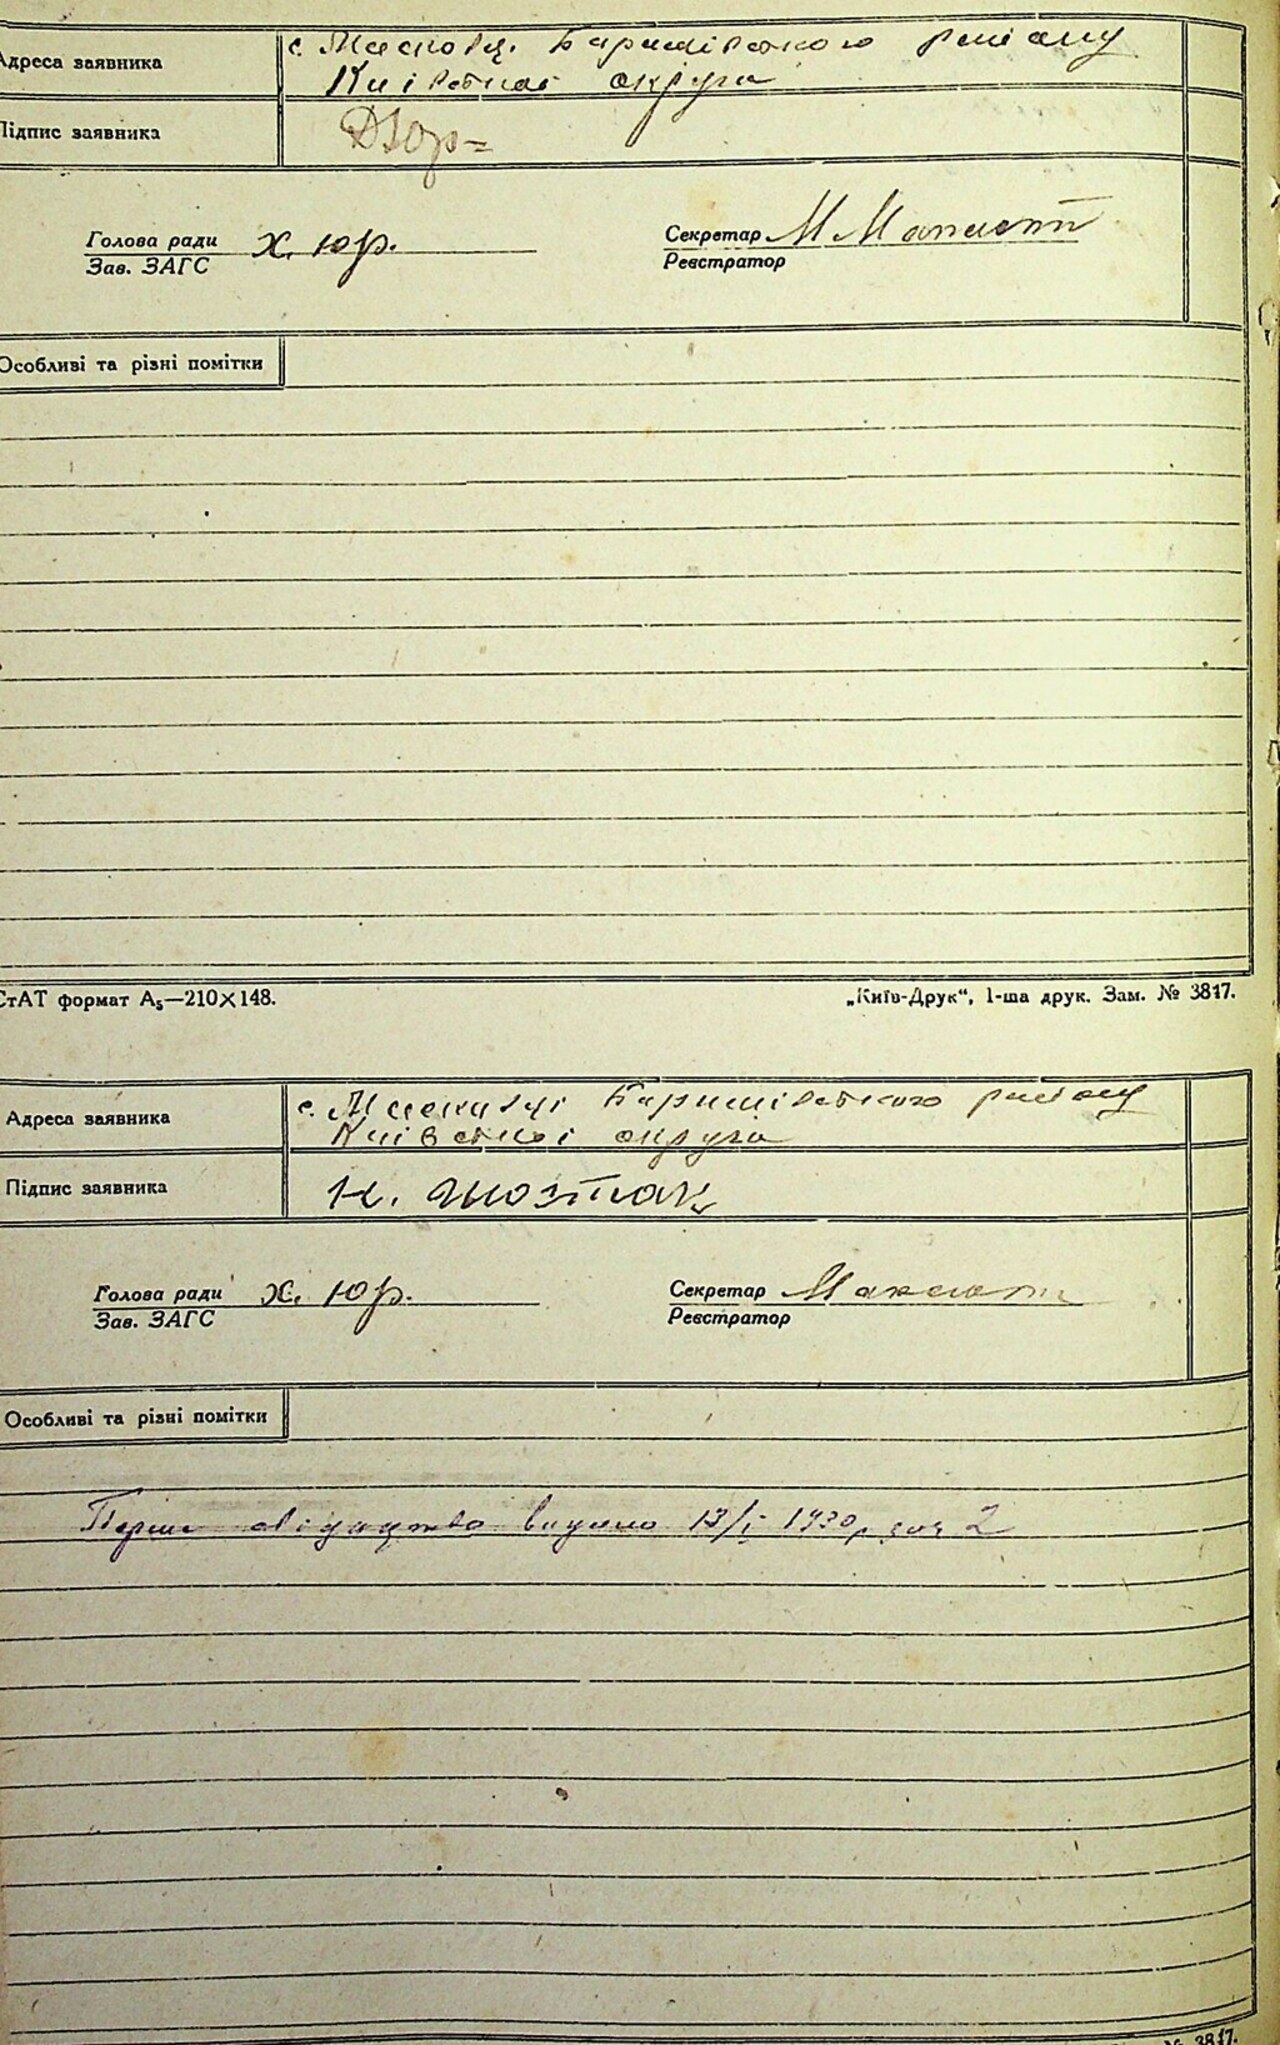 Адреса заявника с. Масковці Баришівського району
Київської округи
Підпис заявника
Голова ради Х. Юр. Секретар
Зав. ЗАГС Реєстратор
Особливі та різні помітки
СтАТ формат А₅—210×148. „Київ-Друк“, 1-ша друк. Зам. № 3817.
Адреса заявника с. Масковці Баришівського району
Київської округи
Підпис заявника К. Шозтак
Голова ради Х. Юр. Секретар
Зав. ЗАГС Реєстратор
Особливі та різні помітки
Перше свідоцтво видано 13/I 1930р 2
№ 3817.